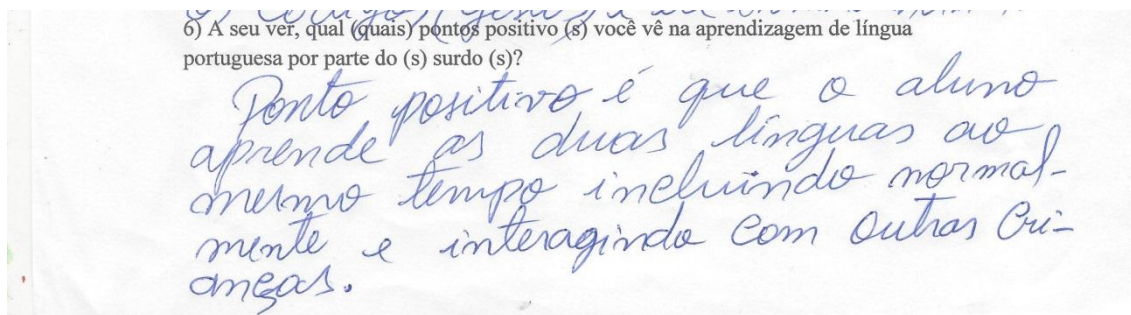 6) A seu ver, qual (quais) pontos positivo (s) você vê na aprendizagem de língua
portuguesa por parte do (s) surdo (s)?
Ponto positivo é que o aluno
aprende as duas línguas ao
mesmo tempo incluindo normal-
mente e interagindo com outras cri-
anças.